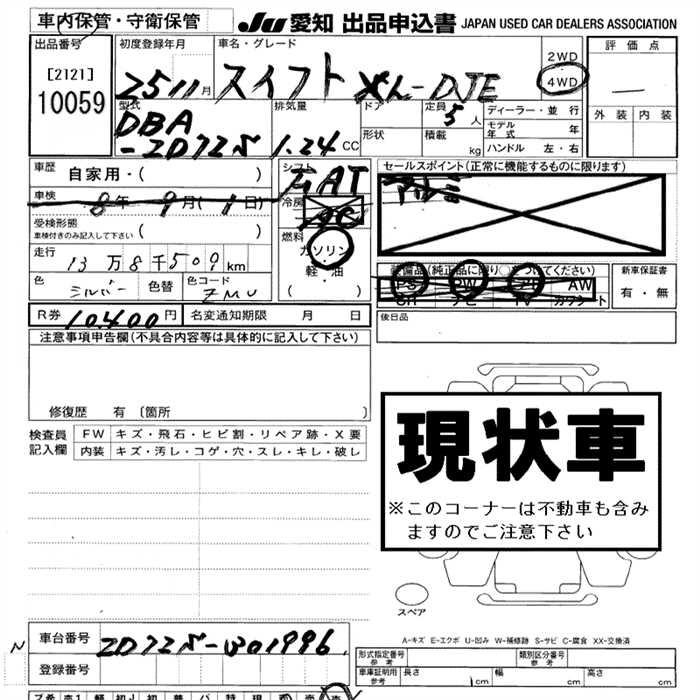 車内保管・守衛保管 JU 愛知 出品申込書 JAPAN USED CAR DEALERS ASSOCIATION
出品番号 初度登録年月 車名・グレード 2WD 評価点
[2121] 25 11月 スイフト DJE 4WD
10059
型式 排気量 ドア 定員 5人 ディーラー・並行 外装 内装
DBA 1.24 CC 形状 積載 kg モデル年式 年
-ZD72S ハンドル 左・右
車歴 自家用・( ) シフト AT セールスポイント(正常に機能するものに限ります)
車検 8年 9月(1日) 冷房 AC アルミ
受検形態 ( )
車検付きのみ記入して下さい
燃料 ガソリン・軽・油 ( )
走行 13万8千509km 装備品(純正品に限り○をつけてください) 新車保証書
色 シルバー 色替 色コード ZMU PS PW AW 有・無
SR ナビ TV カワシート
R券 10,400円 名変通知期限 月 日 後日品
注意事項申告欄(不具合内容等は具体的に記入して下さい)
修復歴 有 〔箇所 〕
検査員 FW キズ・飛石・ヒビ割・リペア跡・X要
記入欄 内装 キズ・汚レ・コゲ・穴・スレ・キレ・破レ
現状車
※このコーナーは不動車も含み
ますのでご注意下さい
スペア
A-キズ E-エクボ U-凹み W-補修跡 S-サビ C-腐食 XX-交換済
N 車台番号 ZD72S-
登録番号
形式指定番号 参考 類別区分番号 参考
車庫証明用 参考 長さ cm 幅 cm 高さ cm